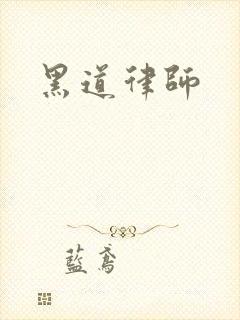 黑道律師
藍鳶